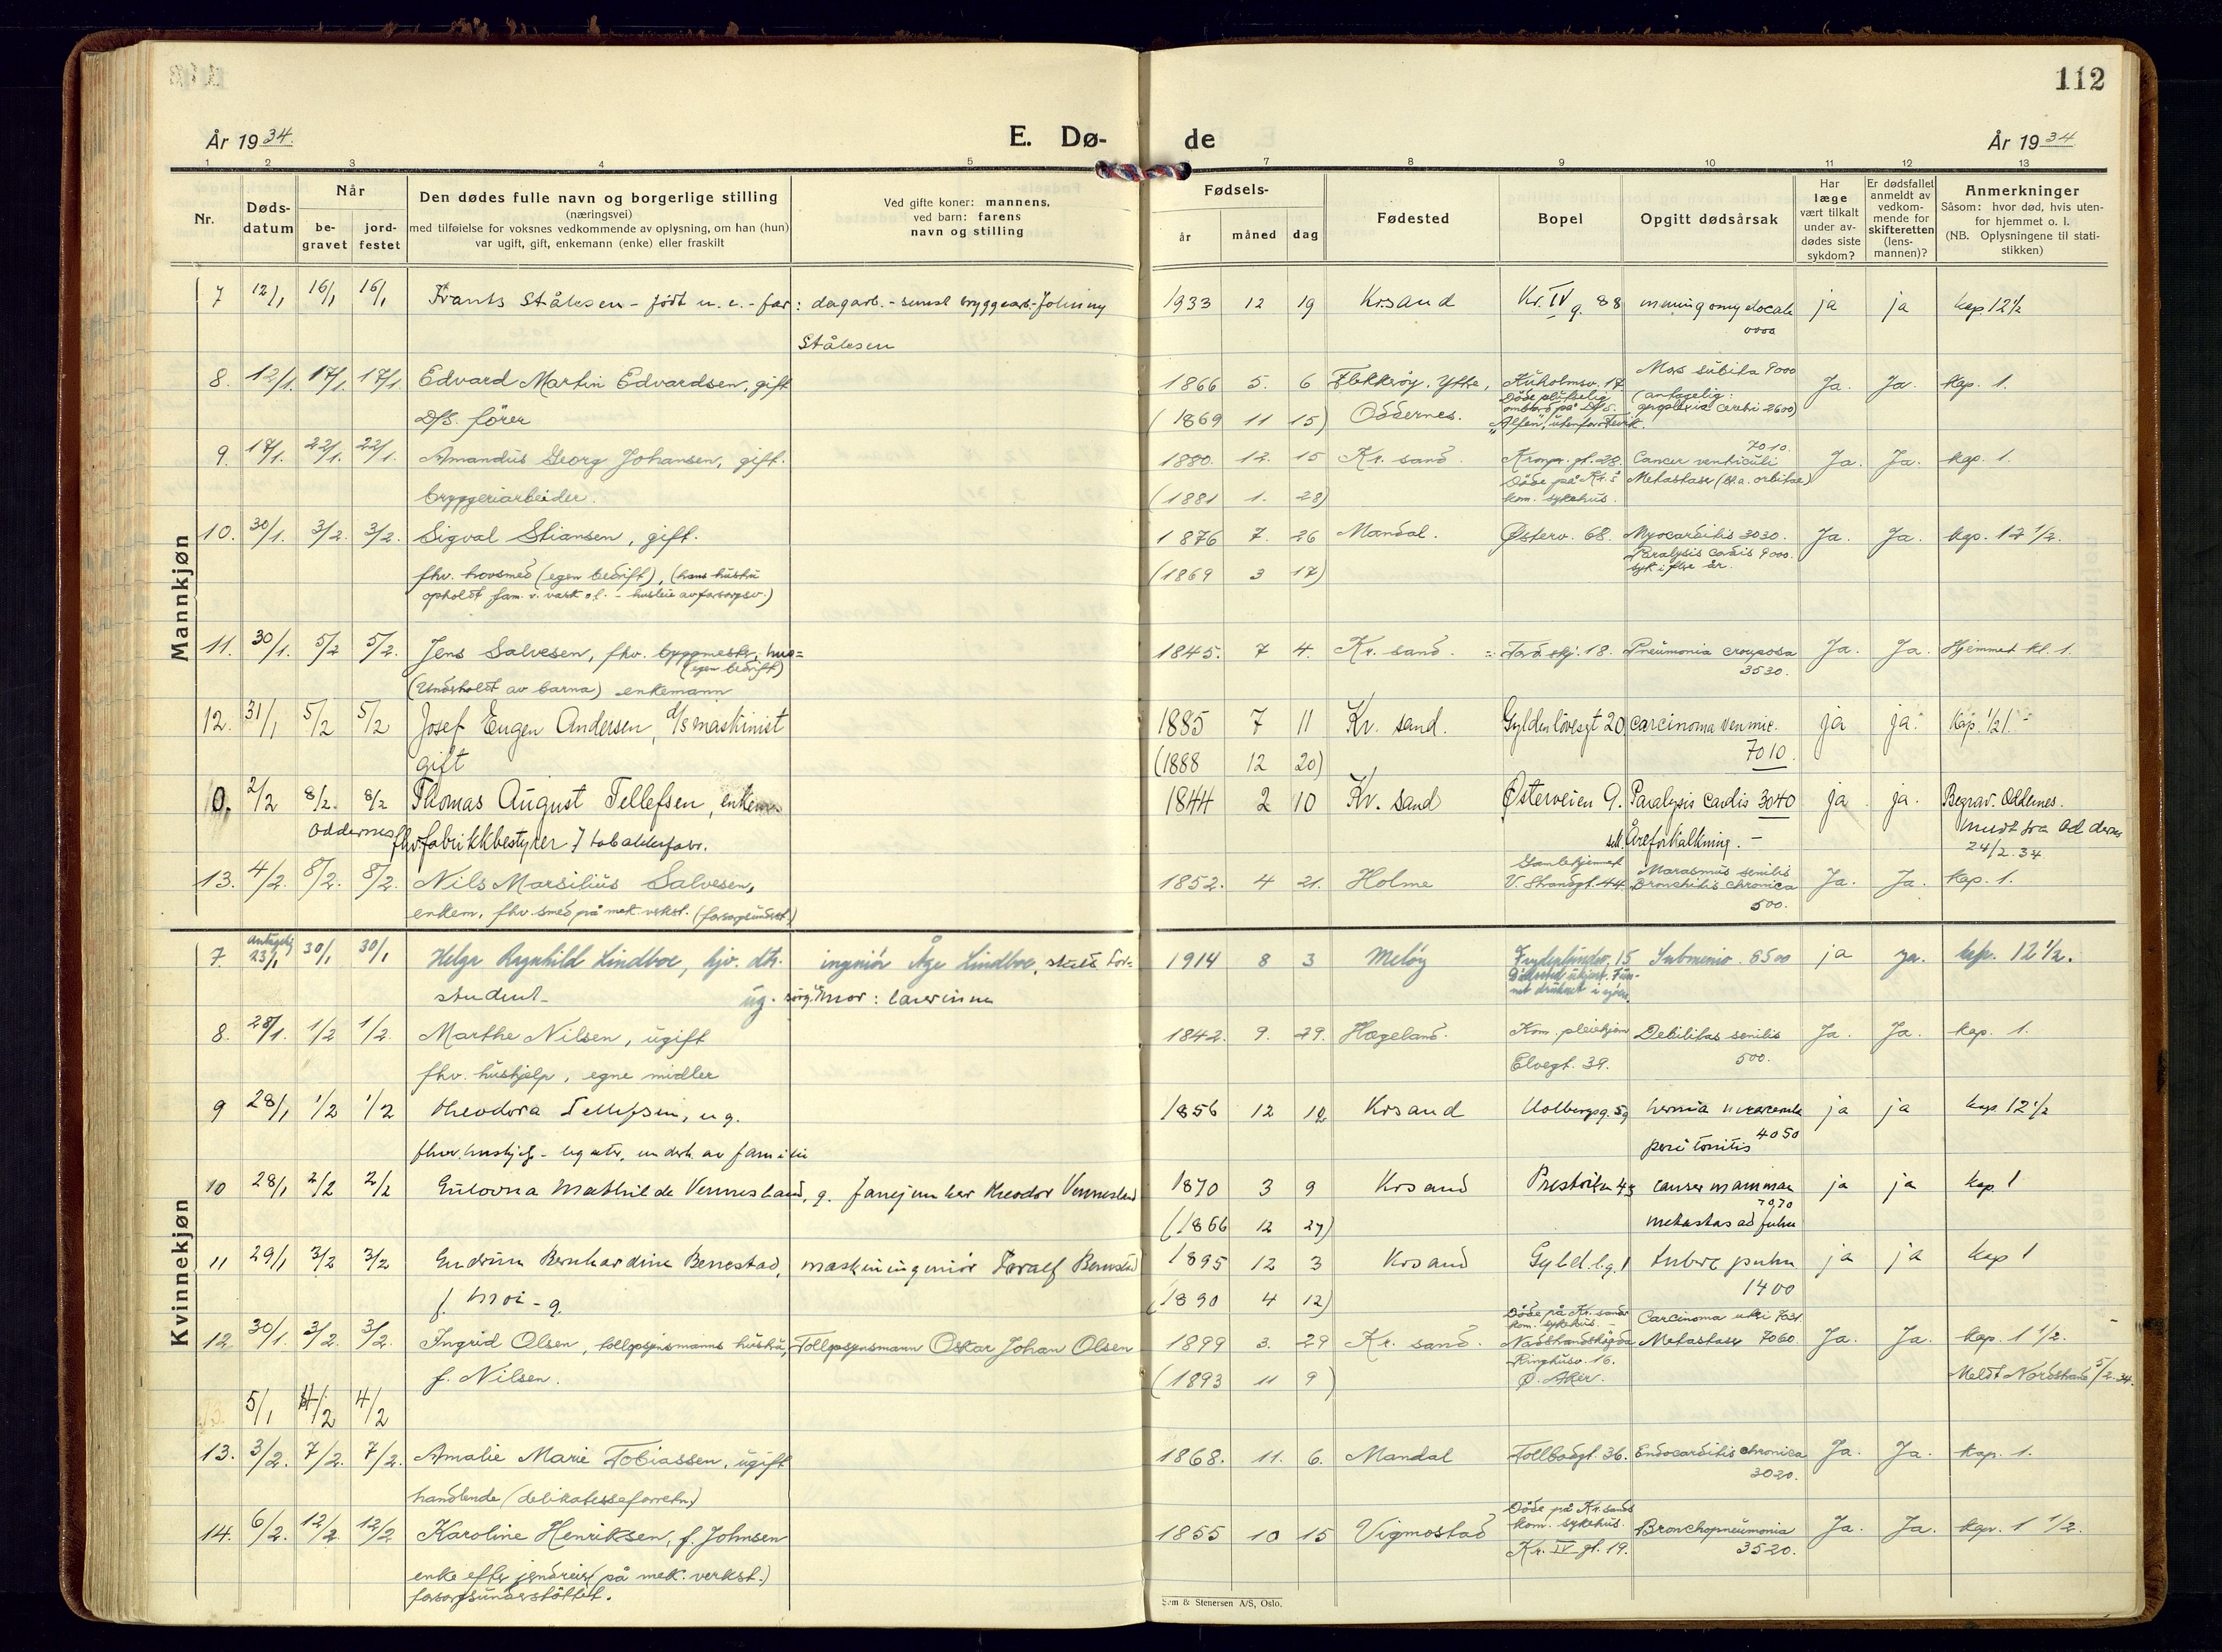 112
År 1934.
E. Dø-
de
År 1934
1 2 3 4 5 7 8 9 10 11 12 13
Nr.
Døds-
datum
Når
be-
gravet
jord-
festet
Den dødes fulle navn og borgerlige stilling
(næringsvei)
med tilføielse for voksnes vedkommende av oplysning, om han (hun)
var ugift, gift, enkemann (enke) eller fraskilt
Ved gifte koner: mannens,
ved barn: farens
navn og stilling
Fødsels-
år måned dag
Fødested
Bopel
Opgitt dødsårsak
Har
læge
vært tilkalt
under av-
dødes siste
sykdom?
Er dødsfallet
anmeldt av
vedkom-
mende for
skifteretten
(lens-
mannen)?
Anmerkninger
Såsom: hvor død, hvis uten-
for hjemmet o. l.
(NB. Oplysningene til stati-
stikken)
Mannkjøn
7 12/1 16/1 16/1 Frants Stålesen - født u. e. - far: dagarb. - senest bryggearb. Johnny 1933 12 19 Kr.sand Kr. IV g. 88 ja ja kap. 12 1/2
Stålesen
8. 12/1. 17/1. 17/1. Edvard Martin Edvardsen, gift 1866 5. 6 Flekkrøy, Ytre, Kuholmsv. 17 Mors subita 9000 Ja. Ja. Kap. 1.
D/S. fører (1869 11 15) Oddernes. Døde plutselig ombord på D/S. "Alfen", utenfor (antagelig: apoplexia cerebri 2600)
9. 17/1. 22/1. 22/1. Amandus Georg Johansen, gift. 1880. 12. 15 Kr. sand. Kronpr. gt. 28. Cancer ventriculi 7010. Ja. Ja. Kap. 1.
bryggeriarbeider. (1881 1. 28) Døde på Kr.s kom. sykehus. Metastase (bl.a. orbitae)
10. 30/1. 3/2. 3/2. Sigval Stiansen, gift. 1876 7. 26 Mandal. Østerv. 68. Myocarditis 3030. Ja. Ja. Kap. 12 1/2.
fhv. hovsmed (egen bedrift), (hans hustru (1869 3 17) Paralysis cordis 9000.
opholdt fam. v. vask o.l. - husleie av forsorgsv.) syk i flre år.
11. 30/1. 5/2 5/2. Jens Salvesen, fhv. byggmester, hus= 1845. 7 4. Kr. sand. Pneumonia crouposa Ja. Ja. Hjemmet kl. 1.
(egen bedrift) 3530.
(Undsholdt av barna) enkemann
12. 31/1 5/2 5/2 Josef Eugen Andersen, d/s maskinist 1885 7 11 Kr. sand. Gyldenløvesgt 20 carcinoma ja ja. Kap. 1/2 1.
gift (1888 12 20) 7010.
0. 2/2 8/2. 8/2 Thomas August Tellefsen, enkem. 1844 2 10 Kr. sand Østerveien 9. Paralysis cordis 3040 ja ja. Begrav. Oddernes.
Oddernes fhv fabrikkbestyrer Åreforkalkning. -
24/2. 34
13. 4/2. 8/2. 8/2. Nils Marsilius Salvesen, 1852. 4 21. Holme Gamlehjemmet V. Strandgt. 44 Marasmus senilis Bronchitis chronica Ja. Ja. Kap. 1.
enkem. fhv. smed på mek. vekst. (forsorgsundst.) 500.
Kvinnekjøn
7. antagelig 23/1 30/1 30/1 Helga Ragnhild Lindboe, hjv. dtr. ingeniør Åge Lindboe, 1914 8 3 Meløy 15 Submersio. 8500 ja ja. kap. 12 1/2.
student - ug. mor: lærerinne
8. 28/1. 1/2 1/2. Marthe Nilsen, ugift 1842. 9. 29. Hægeland. Kom. pleiehjem Debilitas senilis Ja. Ja. kap. 1.
fhv. hushjelp, egne midler Elvegt. 39. 500.
9 28/1 1/2 1/2 Theodora Tellefsen, ug. 1856 12 12 Krsand Holbergsg. 59 hernia ja ja kap. 12 1/2
fhv. hushjelp - ugift, underh. av familie peritonitis 4050
10 28/1 2/2 2/2 Mathilde Vennesland, g. Theodor Vennesland 1870 3 9 Krsand 43 cancer mammae ja ja kap. 1
(1866 12 27) 7070 metastas ad pulm
11 29/1 3/2 3/2 Gudrun Bernhardine Bennestad, maskiningeniør Toralf Bennestad 1895 12 3 Krsand Gyld.l.g. 1 tuberc pulm ja ja kap 1
f. Moi - g. (1890 4 12) 1400
12 30/1. 3/2. 3/2. Ingrid Olsen, tollopsynsmanns hustru, Tollopsynsmann Oskar Johan Olsen 1899 3. 29 Kr. sand. Døde på Kr. sands kom. sykehus. - Carcinoma uteri Metastaser 7060. Ja. Ja. kap. 1 1/2.
f. Nilsen. (1893 11 9) Ringhusv. 16. Ø. Aker. Meldt Nordstrand 5/2.34.
5/1 4/2 4/2
13. 3/2. 7/2. 7/2. Amalie Marie Tobiassen, ugift 1868. 11. 6. Mandal Tollbodgt. 36. Endocarditis chronica Ja. Ja. Kap. 1.
handlende (delikatesseforretn.) 3020.
14. 6/2. 12/2. 12/2 Karoline Henriksen, f. Johnsen 1855 10 15 Vigmostad Døde på Kr. sands kom. sykehus. Kr. IV gt. 19. Bronchopneumonia Ja. Ja. Kap. 1 1/2.
enke efter jerndreier (på mek. verkst.) 3520.
forsorgsunderstøttet.
Sem & Stenersen A/S, Oslo.